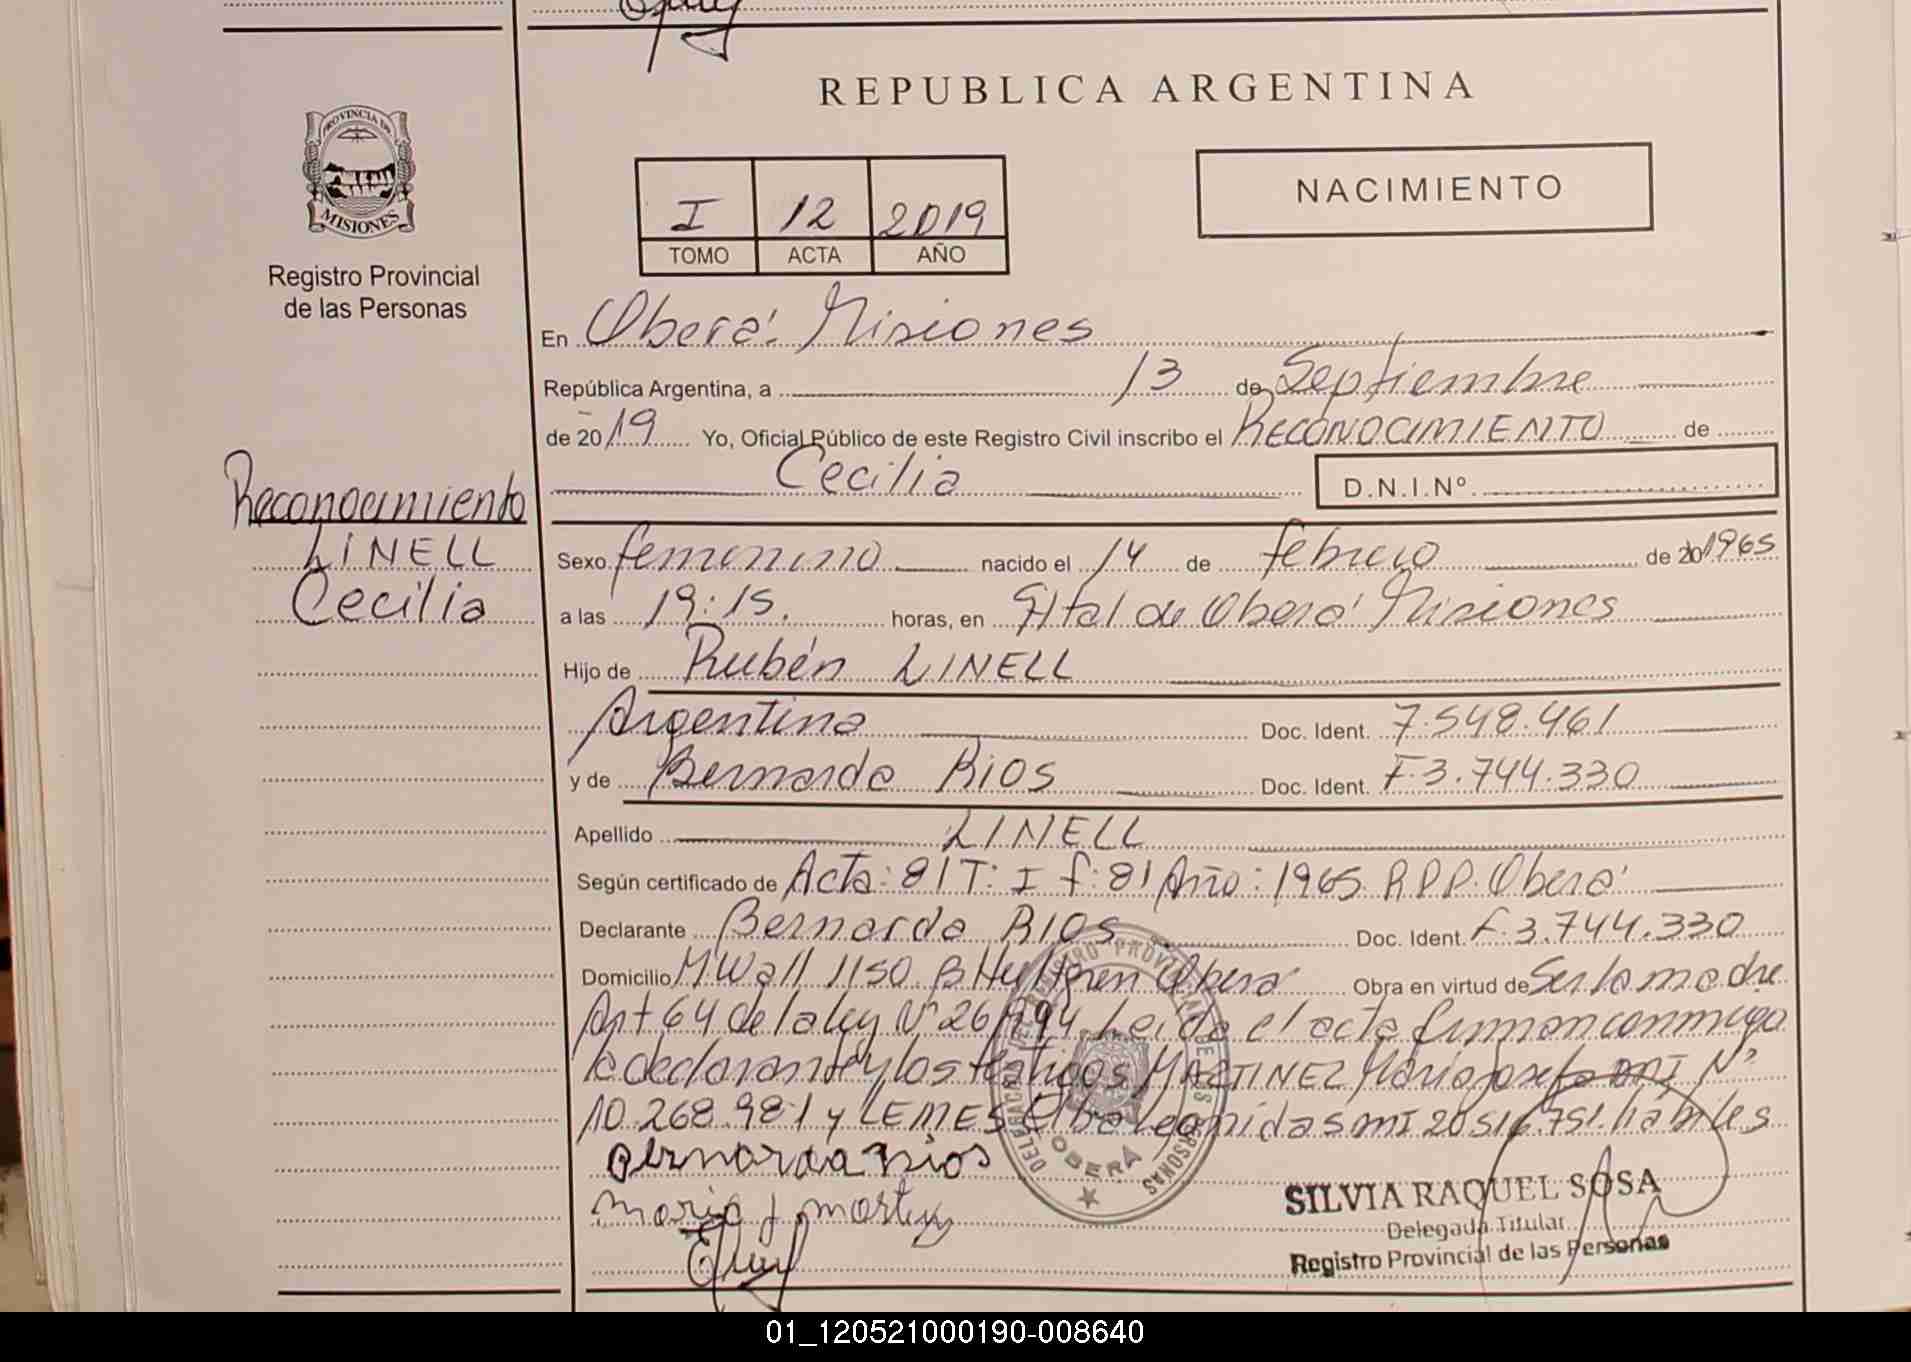 REPUBLICA ARGENTINA
PROVINCIA DE
MISIONES
Registro Provincial
de las Personas
I 12 2019
TOMO ACTA AÑO
NACIMIENTO
En Oberá. Misiones
República Argentina, a 13 de Septiembre
de 2019 Yo, Oficial Público de este Registro Civil inscribo el RECONOCIMIENTO de
Cecilia D.N.I.Nº
Reconocimiento
LINELL
Cecilia
Sexo femenino nacido el 14 de febrero de 20 1965
a las 19:15. horas, en Htal de Oberá Misiones
Hijo de Rubén LINELL
Argentina Doc. Ident. 7.548.461
y de Bernarda RIOS Doc. Ident. F.3.744.330
Apellido LINELL
Según certificado de Acta: 81 T: I f: 81 Año: 1965 R.P.P. Oberá
Declarante Bernarda RIOS Doc. Ident. F.3.744.330
Domicilio M Wall 1150. B Hultgren Oberá Obra en virtud de Ser la madre
Art 64 de la ley Nº 26994 Leida el acta firman conmigo
la declarante y los testigos MARTINEZ Maria Josefa DNI Nº
10.268.981 y LEMES Elba Leonidas MI 20516.751. hábiles
Bernarda Rios
Maria J Martinez
DELEGACION REGISTRO PROVINCIAL DE LAS PERSONAS
OBERÁ
SILVIA RAQUEL SOSA
Delegada Titular
Registro Provincial de las Personas
01_120521000190-008640